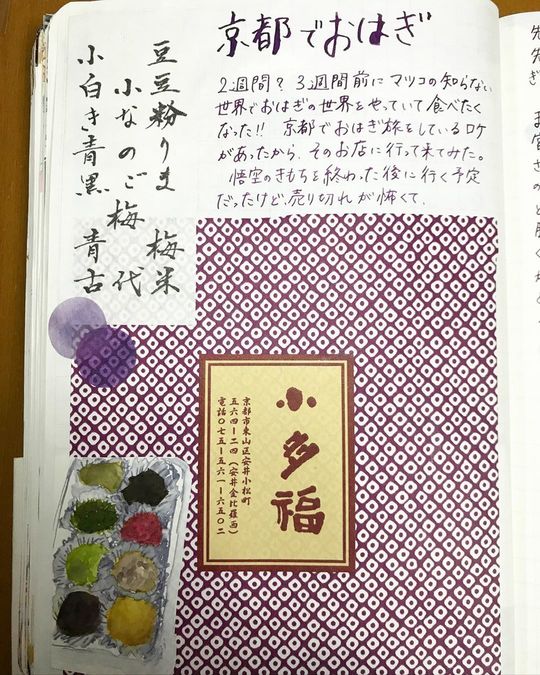 京都でおはぎ
2週間?3週間前にマツコの知らない
世界でおはぎの世界をやっていて食べたく
なった!! 京都でおはぎ旅をしているロケ
があったから、そのお店に行って来てみた。
悟空のきもちを終わった後に行く予定
だったけど、売り切れが怖くて、
豆豆粉りま 梅米
小なのご梅 代
小白き青黒 青古
小多福
京都市東山区安井小松町
五六四ー二四(安井金比羅)
電話〇七五ー五六一ー六五〇二